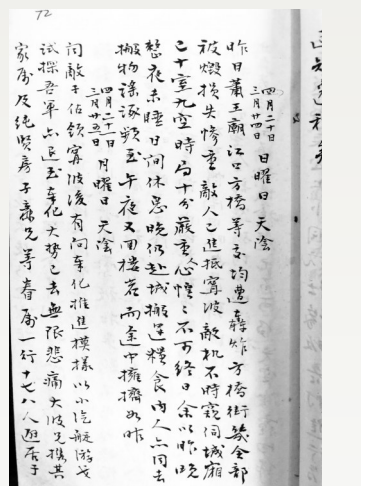 四月二十日
三月廿四日 日曜日 天陰
昨日蕭王廟江口方橋等交均遭轟炸方橋街幾全部
被燬損失慘重敵人已進抵寧波敵机不時窺伺城廂
已十室九空時局十分嚴重心悝々不可終日余以昨晚
整夜未睡日间休息晚仍赴城搬運糧食内人亦同去
搬物諑頻至午夜又回樓若而途中擁擠如昨
四月二十一日
三月廿五日 月曜日 天陰
词敵于佔領寧波後有向奉化推進模樣以小汽艇游弋
试探吾軍亦退至奉化大勢已去無限悲痛大波兄携其
家屬及純賢房子兄等眷屬一行十七八人避居于
72